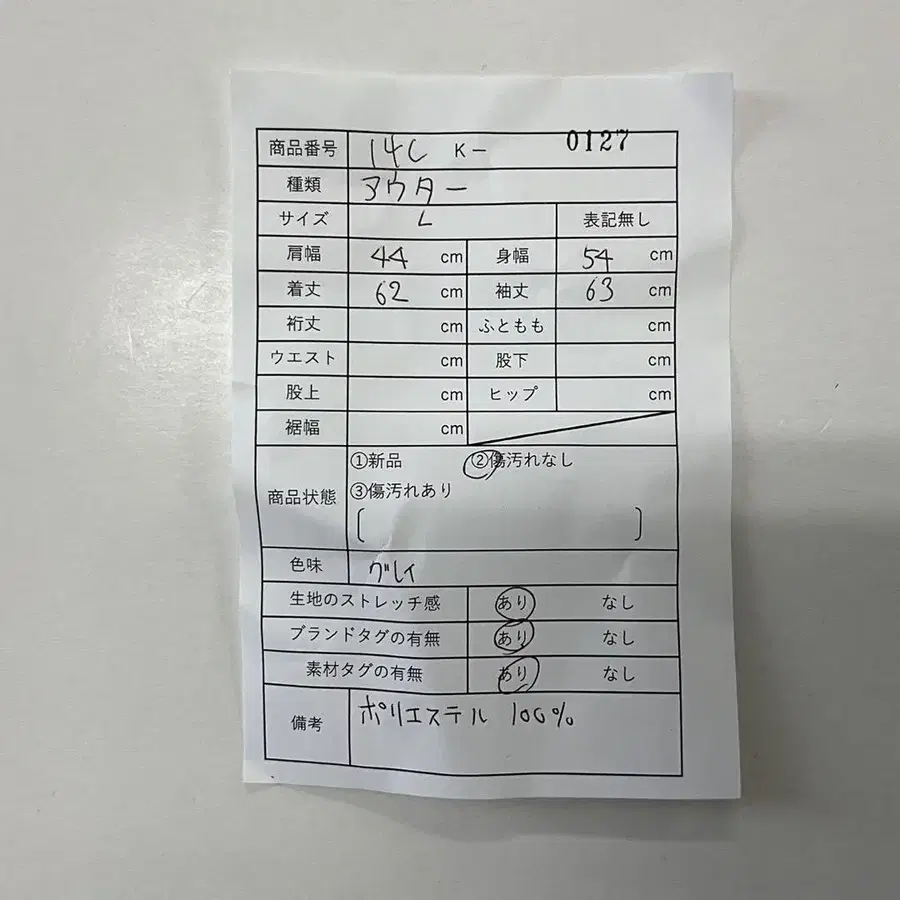 商品番号 14C K- 0127
種類 アウター
サイズ L 表記無し
肩幅 44 cm 身幅 54 cm
着丈 62 cm 袖丈 63 cm
裄丈 cm ふともも cm
ウエスト cm 股下 cm
股上 cm ヒップ cm
裾幅 cm
商品状態 ①新品 ②傷汚れなし
③傷汚れあり
[ ]
色味 グレイ
生地のストレッチ感 あり なし
ブランドタグの有無 あり なし
素材タグの有無 あり なし
備考 ポリエステル 100%